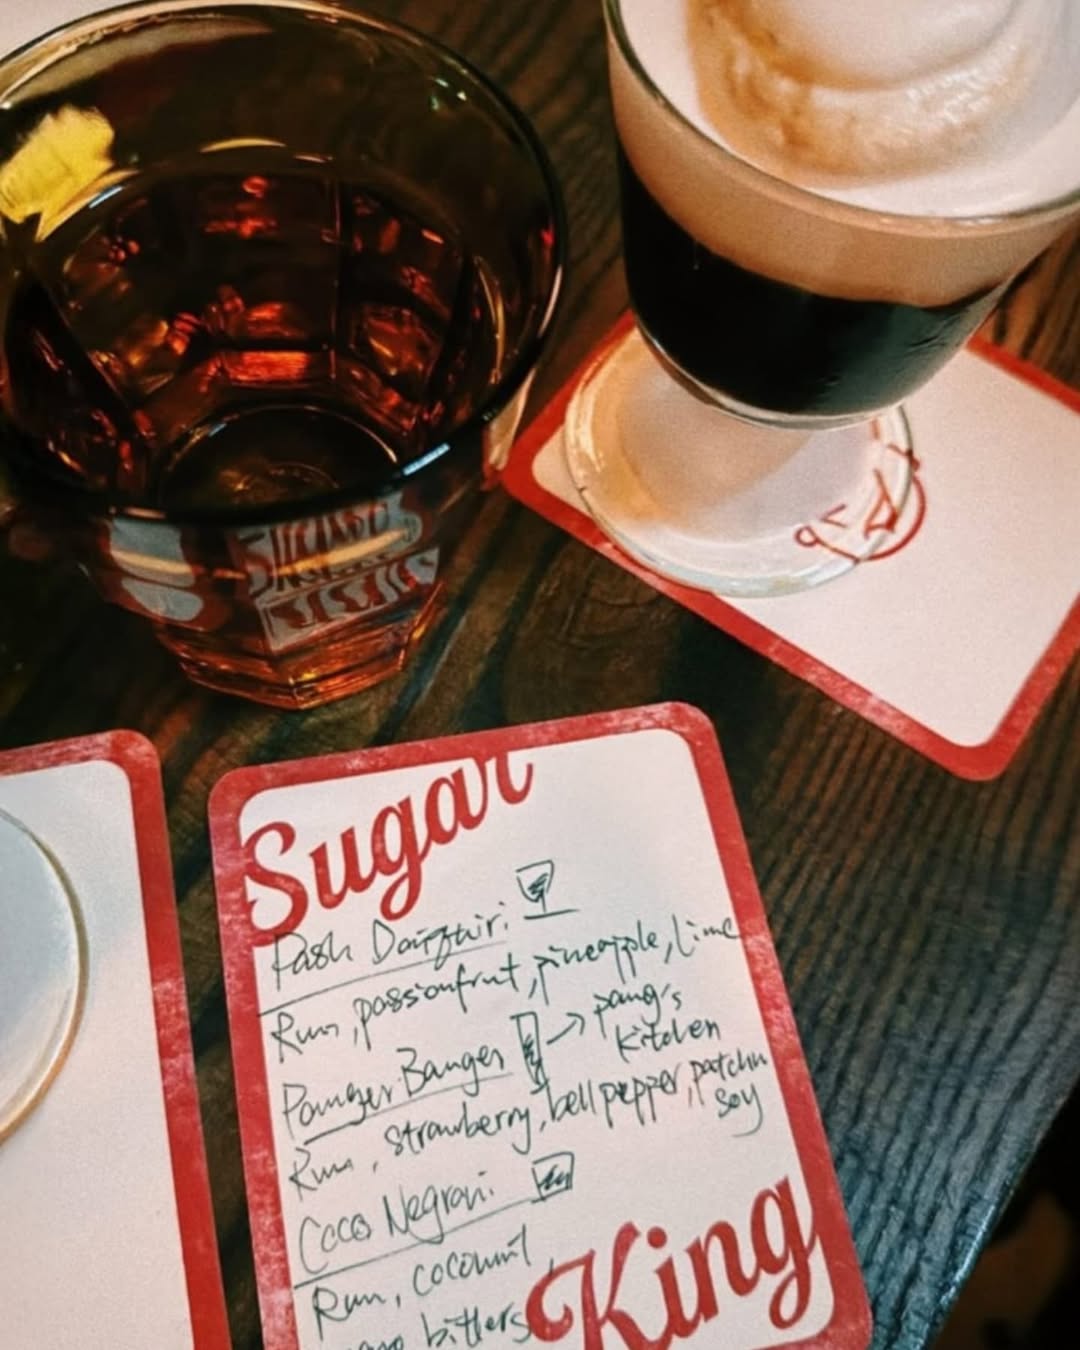 Sugar
Pash Daiquiri
Rum, passionfruit, pineapple, lime
Panger Banger → pang's
kitchen
Rum, strawberry, bell pepper,
soy
Coco Negroni
Rum, coconut,
bitters
King